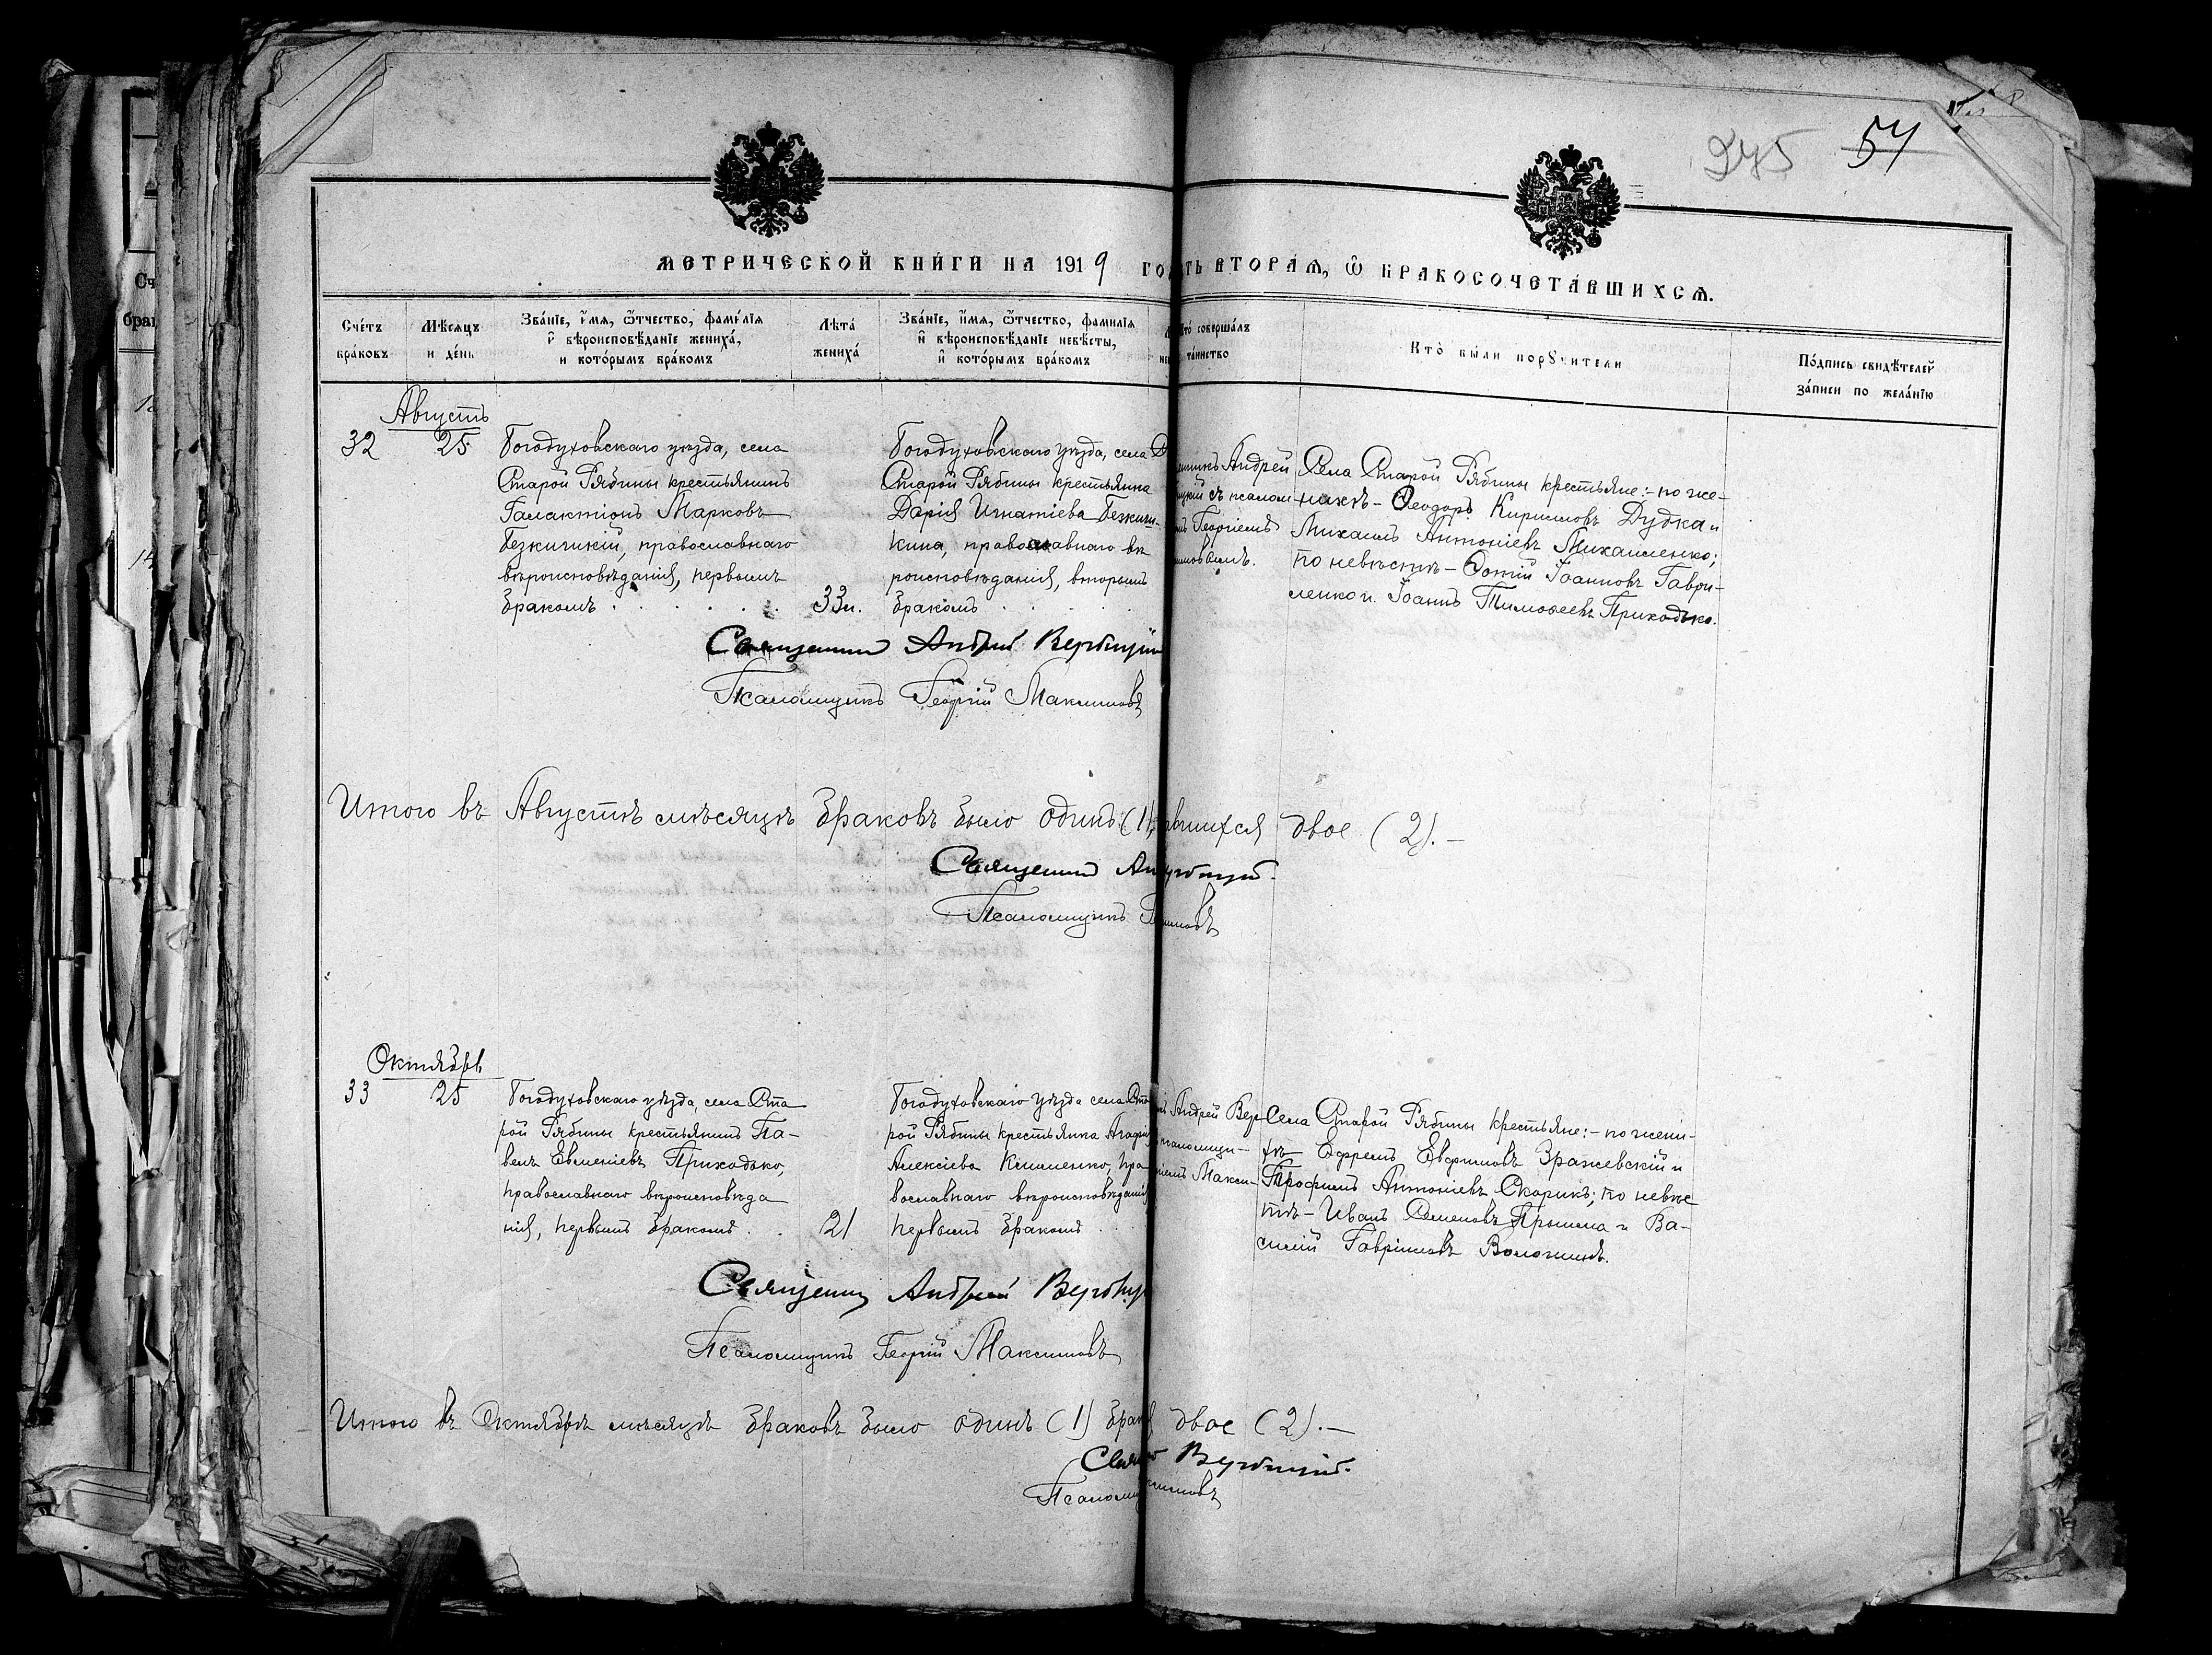 245 57
МЕТРИЧЕСКОЙ КНИГИ НА 1919 ГО
ТЬ ВТОРАѦ, Ѡ БРАКОСОЧЕТАВШИХСѦ.
Счетъ браковъ
Мѣсяцъ и день
Званіе, имя, ѿчество, фамилія и вѣроисповѣданіе жениха, и которымъ бракомъ
Лѣта жениха
Званіе, имя, ѿчество, фамилія и вѣроисповѣданіе невѣсты, и которымъ бракомъ
то совершалъ таинство
Кто были порꙋчители
Подпись свидѣтелей записи по желанію
Августъ
32 25
Богодуховскаго уѣзда, села
Старой Рябины крестьянинъ
Галактіонъ Марковъ
Безкичикій, православнаго
вѣроисповѣданія, первымъ
бракомъ
33л.
Богодуховскаго уѣзда, села
Старой Рябины крестьянка
Дарія Игнатіева Безкичи-
кина, православнаго вѣ
роисповѣданія, вторымъ
бракомъ
Андрей
съ псалом
Георгіемъ
Села Старой Рябины крестьяне:- по же-
нихѣ- Ѳеодоръ Кириловъ Дудка и
Михаилъ Антоніевъ Михайленко;
по невѣстѣ- Фотій Іоанновъ Гаври-
ленко и Іоаннъ Тимофеевъ Приходько.
Священникъ Андрей Вербицкій
Псаломщикъ Георгій Максимовъ
Итого въ Августѣ мѣсяцѣ браковъ было одинъ (1), вшихся двое (2).-
Священникъ Ан рбицкій.
Псаломщикъ Г имовъ
Октябрь
33 25
Богодуховскаго уѣзда, села Ста
рой Рябины крестьянинъ Па-
велъ Евменіевъ Приходько,
православнаго вѣроисповѣда
нія, первымъ бракомъ
21
Богодуховскаго уѣзда села Ста
рой Рябины крестьянка Агафія
Алексіева Клименко, пра
вославнаго вѣроисповѣданія
первымъ бракомъ
Андрей Вер
псаломщи-
Макси-
Села Старой Рябины крестьяне:- по жени-
хѣ Ефремъ Евфимовъ Зражевскій и
Трофимъ Антоніевъ Скорикъ; по невѣс
тѣ- Иванъ Семеновъ и Ва-
силій Гавріиловъ
Священникъ Андрей Вербиц
Псаломщикъ Георгій Максимовъ
Итого въ Октябрѣ мѣсяцѣ браковъ было одинъ (1) брач двое (2).-
Свящ Вербицкій.
Псаломщ имовъ